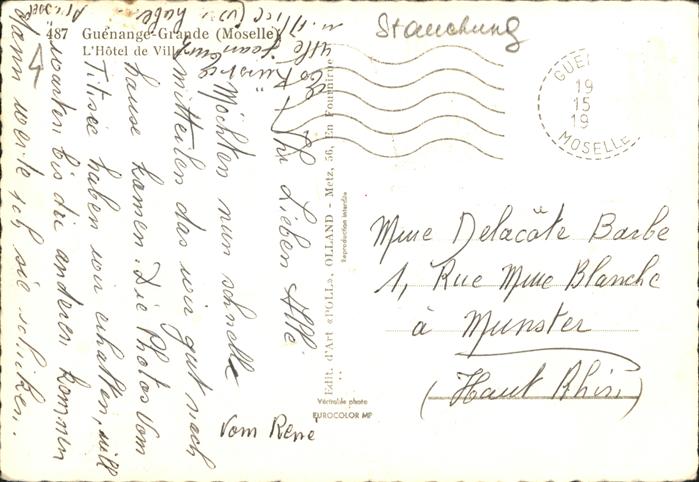 487 Guénange-Grande (Moselle)
L'Hôtel de Ville
Stauchung
GUEN
19
15
19
MOSELLE
Ihr Lieben Alle
Möchten nun schnell
mitteilen das wir gut nach
hause kamen. Die Photos vom
Titisee haben wir erhalten, will
warten bis die anderen kommen
dann werde ich sie schicken.
Vom René
Edit. d'Art «POLI», OLLAND - Metz, 56, En Fournirue
Reproduction interdite
Véritable photo
EUROCOLOR MP
Mme Delacôte Barbe
1, Rue Mme Blanche
à Munster
(Haut Rhin)